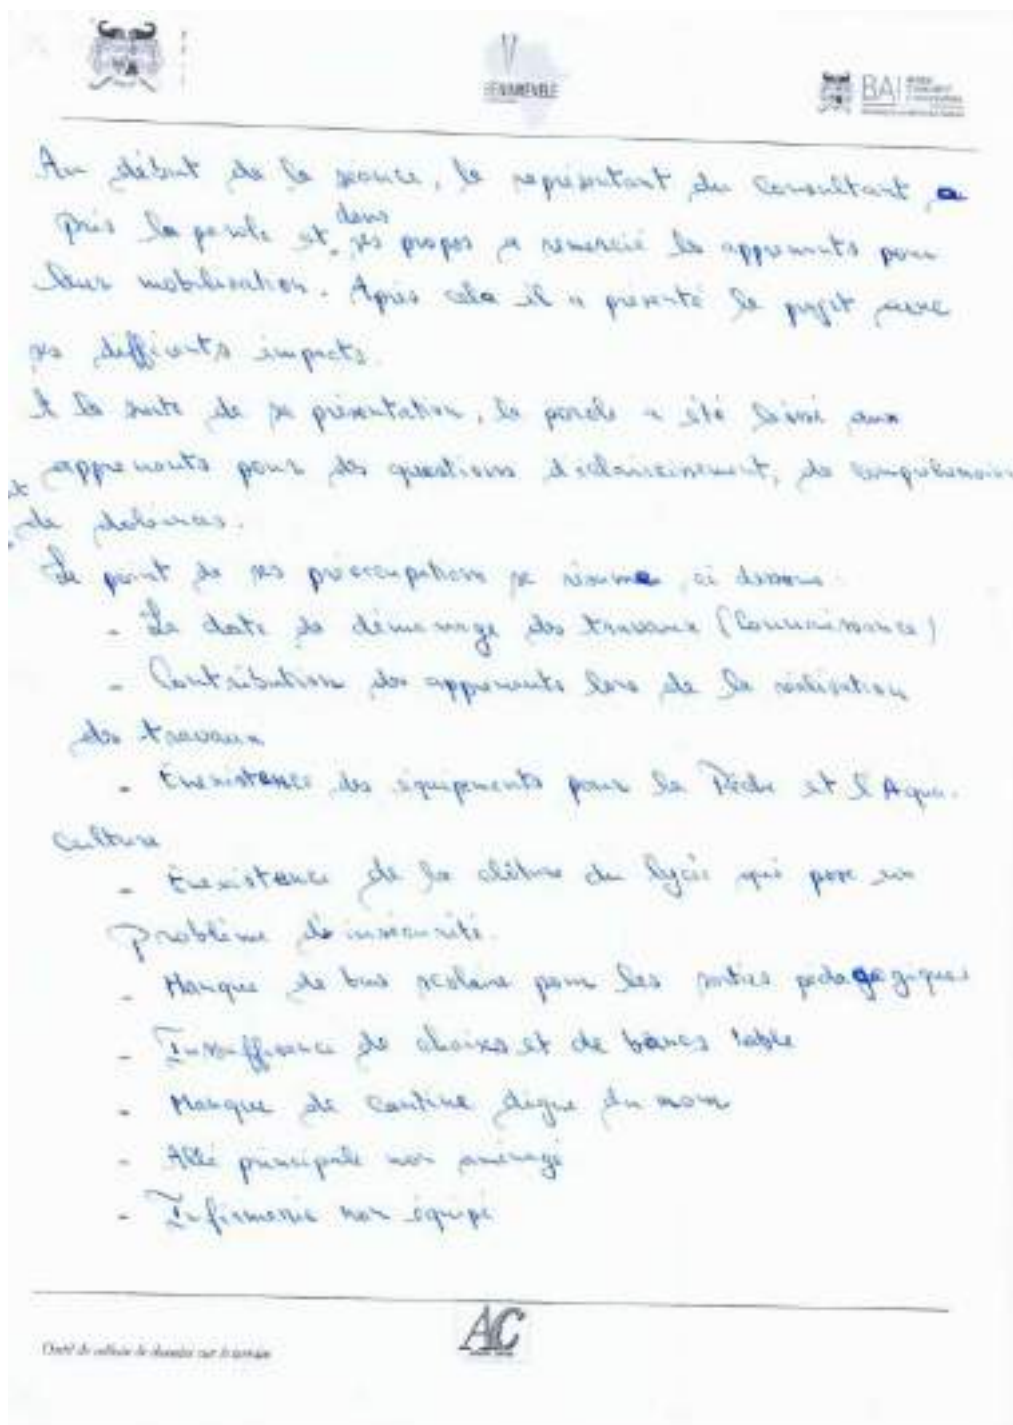 BÉNIN RÉVÉLÉ
BAI
Au début de la séance, le représentant du Consultant a
pris la parole et dans ses propos a remercié les apprenants pour
leur mobilisation. Après cela il a présenté le projet avec
ses différents impacts.
A la suite de sa présentation, la parole a été laissé aux
apprenants pour des questions d'éclaircissement, de compréhension
et de doléances.
Le point de ses préoccupations se résume ci dessous.
- La date de démarrage des travaux (Connaissance)
- Contribution des apprenants lors de la réalisation
des travaux
- Inexistence des équipements pour la Pêche et l'Aqua-
culture
- Inexistence de la clôture du lycée qui pose un
problème d'insécurité.
- Manque de bus scolaire pour les sorties pédagogiques
- Insuffisance de chaises et de bancs table
- Manque de cantine digne du nom
- Allé principale non aménagé
- Infirmerie non équipé
Outil de collecte de données sur le terrain
AC